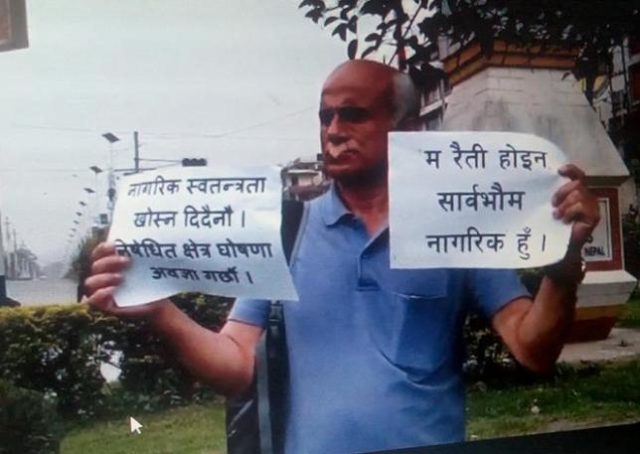 नागरिक स्वतन्त्रता
खोस्न दिदैनौं ।
निषेधित क्षेत्र घोषणा
अवज्ञा गर्छौं ।
म रैती होइन
सार्वभौम
नागरिक हुँ ।
NEPAL